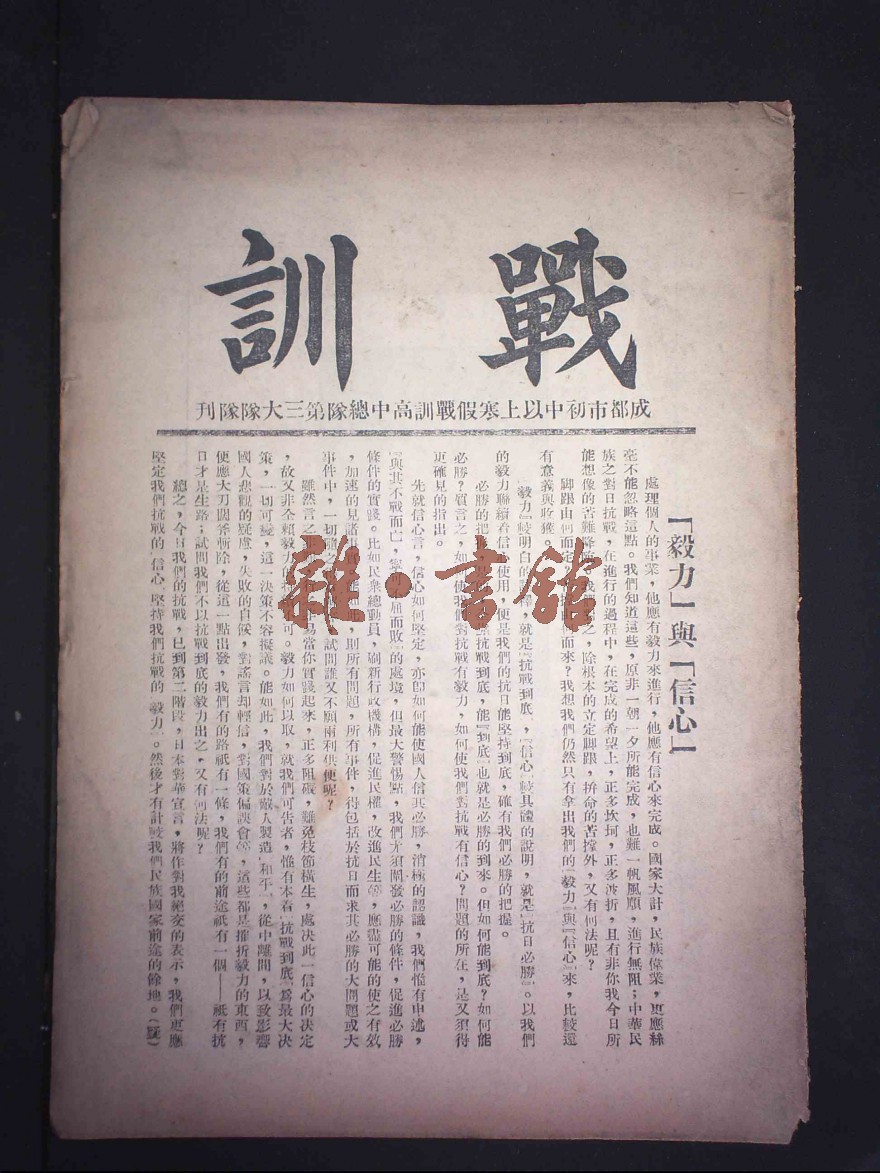 戰訓
成都市初中以上寒假戰訓高中總隊第三大隊隊刊
「毅力」與「信心」
處理個人的事業，他應有毅力來進行，他應有信心來完成。國家大計，民族偉業，更應絲
毫不能忽略這點。我們知道這些，原非一朝一夕所能完成，也難一帆風順，進行無阻；中華民
族之對日抗戰，在進行的過程中，在完成的希望上，正多坎坷，正多波折，且有非你我今日所
能想像的苦難降臨 我們 之，除根本的立定脚跟，拚命的苦撐外，又有何法呢？
脚跟由何而定 何而來？我想我們仍然只有拿出我們的「毅力」與「信心」來，比較還
有意義與收獲。
毅力」較明白的 釋，就是「抗戰到底」，「信心」較具體的說明，就是「抗日必勝」。以我們
的毅力聯續着信 使用，便是我們的抗日能堅持到底，確有我們必勝的把握。
必勝的把 抗戰到底，能「到底」也就是必勝的到來。但如何能到底？如何能
必勝？質言之，如 使我們對抗戰有毅力，如何使我們對抗戰有信心？問題的所在，是又須得
更確見的指出。
先就信心言，信心如何堅定，亦卽如何能使國人信其必勝，消極的認識，我們惟有申述，
「與其不戰而亡，寧 屈而敗」的處境，但最大警惕點，我們尤須闡發必勝的條件，促進必勝
條件的實踐。比如民衆總動員，刷新行政機構，促進民權，改進民生等，應盡可能的使之有效
，加速的見諸事 ，則所有問題，所有事件，得包括於抗日而求其必勝的大問題或大
事件中，一切 之 試問誰又不願兩利俱便呢？
雖然言之 易當你實踐起來，正多阻礙，難免枝節橫生，處決此一信心的决定
，故又非全賴毅力的 可。毅力如何以取，就我們可告者，惟有本着「抗戰到底」爲最大决
策，一切可變，這一决策不容擬議。能如此，我們對於敵人製造「和平」，從中離間，以致影響
國人悲觀的疑慮，失敗的自候，對謠言却輕信，對國策偏誤會等，這些都是摧折毅力的東西，
便應大刀闊斧斬除，從這一點出發，我們有的路祇有一條，我們有的前途祇有一個——祇有抗
日才是生路；試問我們不以抗戰到底的毅力出之，又有何法呢？
總之，今日我們的抗戰，已到第二階段，日本對華宣言，將作對我絕交的表示，我們更應
堅定我們抗戰的「信心」堅持我們抗戰的「毅力」。然後才有計較我們民族國家前途的餘地。
雜·書館